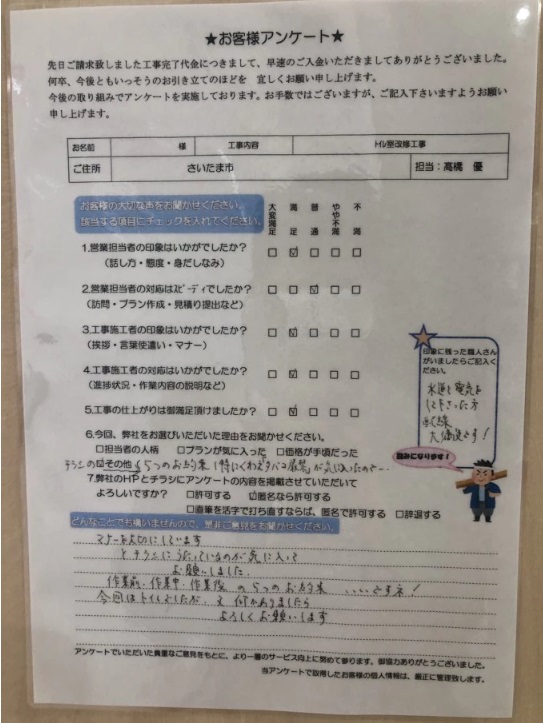 ★お客様アンケート★
先日ご請求致しました工事完了代金につきまして、早速のご入金いただきましてありがとうございました。
何卒、今後ともいっそうのお引き立てのほどを 宜しくお願い申し上げます。
今後の取り組みでアンケートを実施しております。お手数ではございますが、ご記入下さいますようお願い
申し上げます。
お名前 様 工事内容 トイレ室改修工事
ご住所 さいたま市 担当：高橋 優
お客様の大切な声をお聞かせください。
該当する項目にチェックを入れてください。
大変満足 満足 普通 やや不満 不満
1.営業担当者の印象はいかがでしたか？ □ ☑ □ □ □
（話し方・態度・身だしなみ）
2.営業担当者の対応はスピーディでしたか？ □ □ ☑ □ □
（訪問・プラン作成・見積り提出など）
3.工事施工者の印象はいかがでしたか？ □ ☑ □ □ □
（挨拶・言葉使遣い・マナー）
4.工事施工者の対応はいかがでしたか？ □ ☑ □ □ □
（進捗状況・作業内容の説明など）
5.工事の仕上がりは御満足頂けましたか？ □ ☑ □ □ □
印象に残った職人さん
がいましたらご記入く
ださい。
水道と電気を
して下さった方
大満足です！
励みになります！
6.今回、弊社をお選びいただいた理由をお聞かせください。
□担当者の人柄 □プランが気に入った □価格が手頃だった
チラシの ☑その他 5つのお約束（特にくわえタバコ厳禁）が気に入ったので
7.弊社のHPとチラシにアンケートの内容を掲載させていただいて
よろしいですか？ □許可する ☑匿名なら許可する
□直筆を活字で打ち直すならば、匿名で許可する □辞退する
どんなことでも構いませんので、是非ご意見をお聞かせください。
マナーを大切にしています
とチラシにうたっているのが気に入って
お願いしました。
作業前・作業中・作業後の5つのお約束 いいですネ！
今回はトイレでしたが、又何かありましたら
よろしくお願いします
アンケートでいただいた貴重なご意見をもとに、より一層のサービス向上に努めて参ります。御協力ありがとうございました。
当アンケートで取得したお客様の個人情報は、厳正に管理致します。